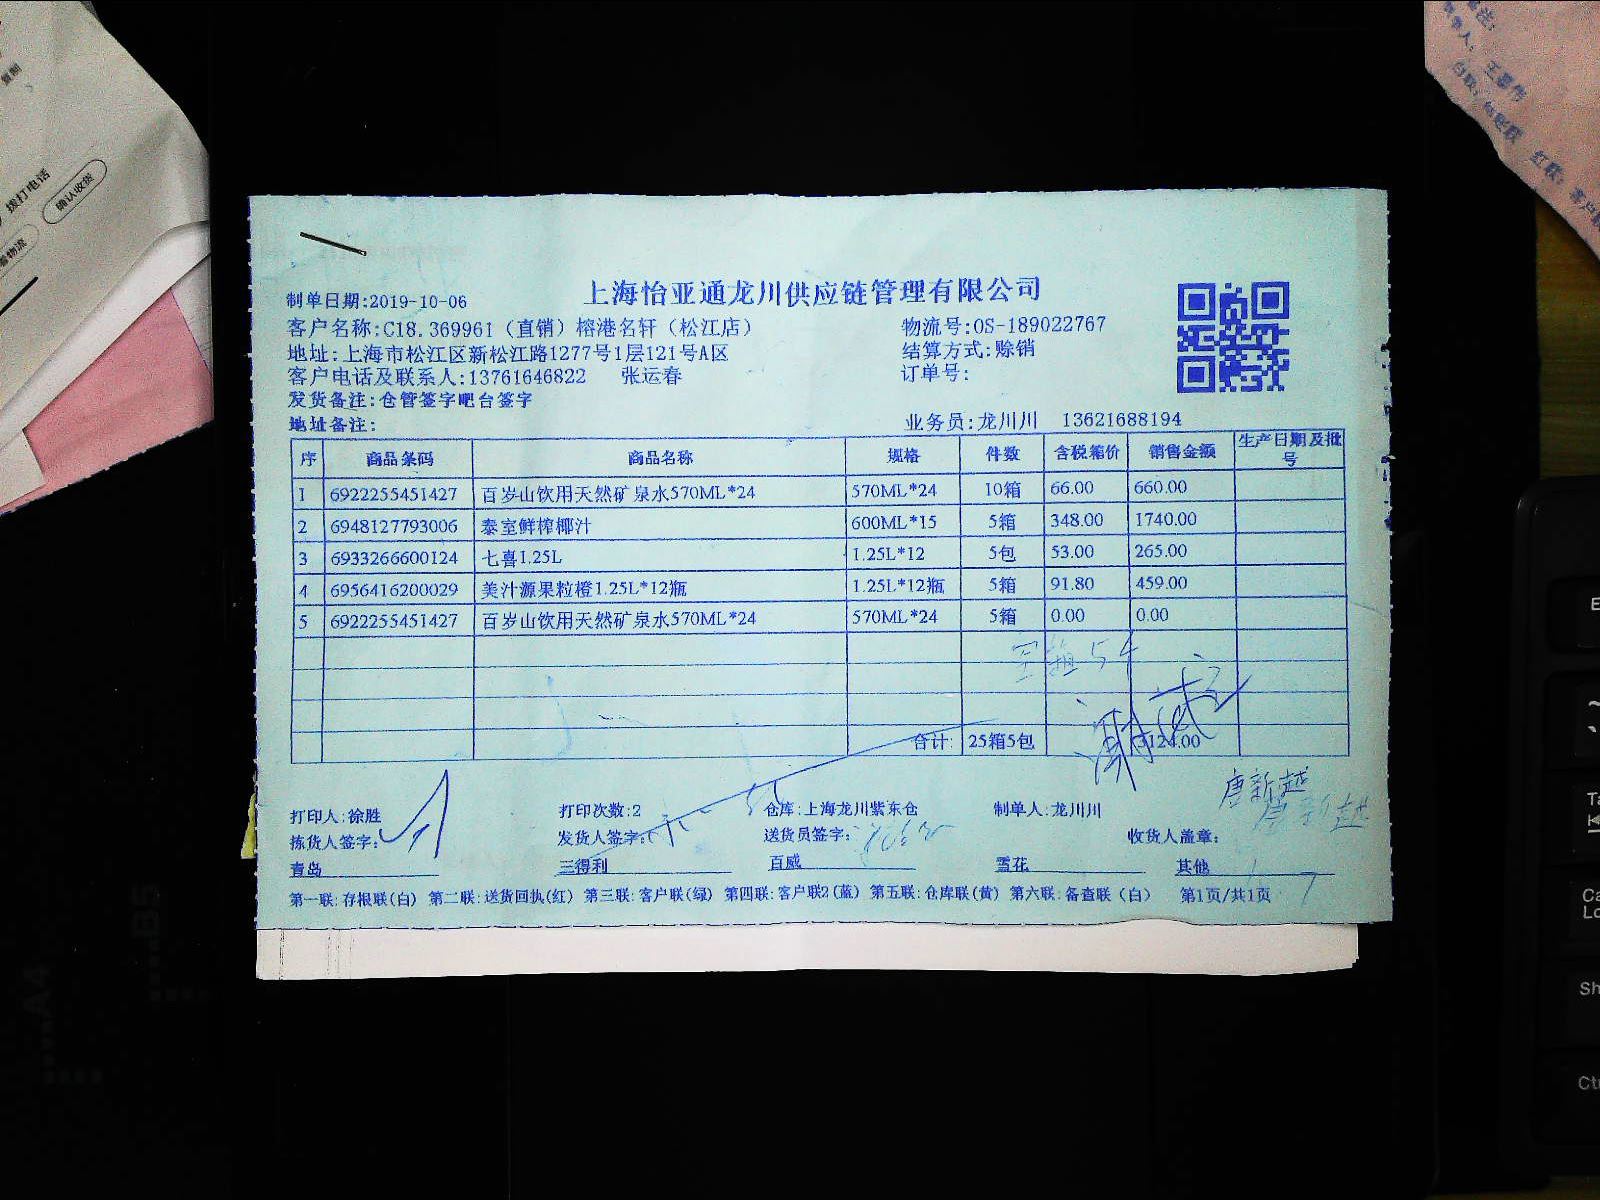 上海怡亚通龙川供应链管理有限公司
制单日期:2019-10-06
客户名称:C18.369961（直销）榕港名轩（松江店） 物流号:OS-189022767
地址:上海市松江区新松江路1277号1层121号A区 结算方式:赊销
客户电话及联系人:13761646822 张运春 订单号:
发货备注:仓管签字吧台签字
地址备注: 业务员:龙川川 13621688194
序 商品条码 商品名称 规格 件数 含税箱价 销售金额 生产日期及批号
1 6922255451427 百岁山饮用天然矿泉水570ML*24 570ML*24 10箱 66.00 660.00
2 6948127793006 泰室鲜榨椰汁 600ML*15 5箱 348.00 1740.00
3 6933266600124 七喜1.25L 1.25L*12 5包 53.00 265.00
4 6956416200029 美汁源果粒橙1.25L*12瓶 1.25L*12瓶 5箱 91.80 459.00
5 6922255451427 百岁山饮用天然矿泉水570ML*24 570ML*24 5箱 0.00 0.00
合计: 25箱5包 3124.00
唐新越
打印人:徐胜 打印次数:2 仓库:上海龙川紫东仓 制单人:龙川川
拣货人签字: 发货人签字: 送货员签字: 收货人盖章:
青岛 三得利 百威 雪花 其他
第一联:存根联(白) 第二联:送货回执(红) 第三联:客户联(绿) 第四联:客户联2(蓝) 第五联:仓库联(黄) 第六联:备查联（白） 第1页/共1页
拨打电话
确认收货